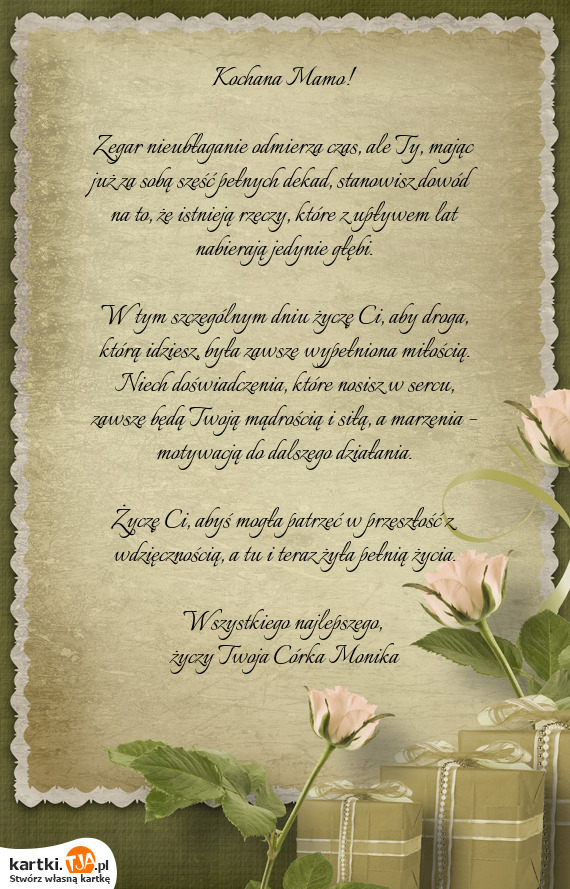 Kochana Mamo!
Zegar nieubłaganie odmierza czas, ale Ty, mając
już za sobą sześć pełnych dekad, stanowisz dowód
na to, że istnieją rzeczy, które z upływem lat
nabierają jedynie głębi.
W tym szczególnym dniu życzę Ci, aby droga,
którą idziesz, była zawsze wypełniona miłością.
Niech doświadczenia, które nosisz w sercu,
zawsze będą Twoją mądrością i siłą, a marzenia –
motywacją do dalszego działania.
Życzę Ci, abyś mogła patrzeć w przeszłość z
wdzięcznością, a tu i teraz żyła pełnią życia.
Wszystkiego najlepszego,
życzy Twoja Córka Monika
kartki.TJA.pl
Stwórz własną kartkę